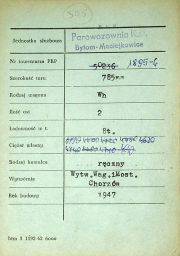 505
Jednostka służbowa
Parowozownia Kl.
Bytom-Maciejkowice
Nr inwentarza PKP 50036 1895-6
Szerokość toru 785mm
Rodzaj wagonu Wh
Ilość osi 2
Ładowność w t. 8t.
Ciężar własny 4620
Rodzaj hamulca ręczny
Wytwórnia Wytw.Wag.iMost.
Chorzów
Rok budowy 1947